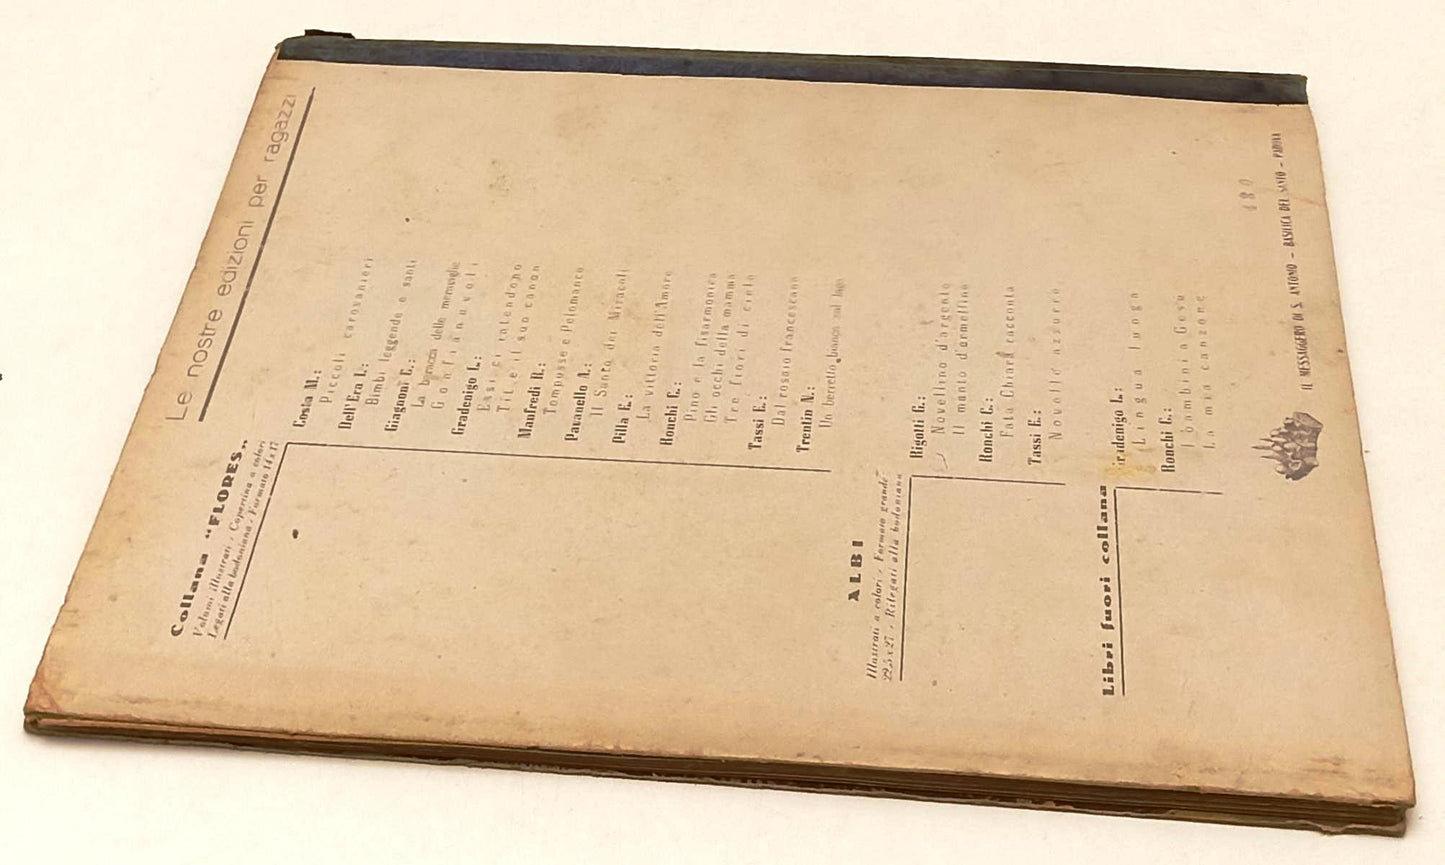 Le nostre edizioni per ragazzi
Collana "FLORES"
Volumi illustrati - Copertina a colori
Legati alla bodoniana - Formato 14x17
Costa M.:
Piccoli carovanieri
Dell'Era I.:
Bimbi leggende e santi
Giagnoni G.:
La baracca delle meraviglie
Gonfianuvoli
Gradenigo L.:
Essi ci attendono
Tit e il suo canon
Manfredi R.:
Tompusse e Pelomanco
Pavanello A.:
Il Santo dei Miracoli
Pilla E.:
La vittoria dell'Amore
Ronchi C.:
Pino e la fisarmonica
Gli occhi della mamma
Tre fiori di cielo
Tassi E.:
Dal rosaio francescano
Trentin N.:
Un berretto bianco sul lago
ALBI
Illustrati a colori - Formato grande
22,5x27 - Rilegati alla bodoniana
Rigotti G.:
Novellino d'argento
Il manto d'armellino
Ronchi C.:
Fata Chiara racconta
Tassi E.:
Novelle azzurre
Libri fuori collana
Gradenigo L.:
Lingua lunga
Ronchi C.:
I bambini a Gesù
La mia canzone
480
IL MESSAGGERO DI S. ANTONIO - BASILICA DEL SANTO - PADOVA